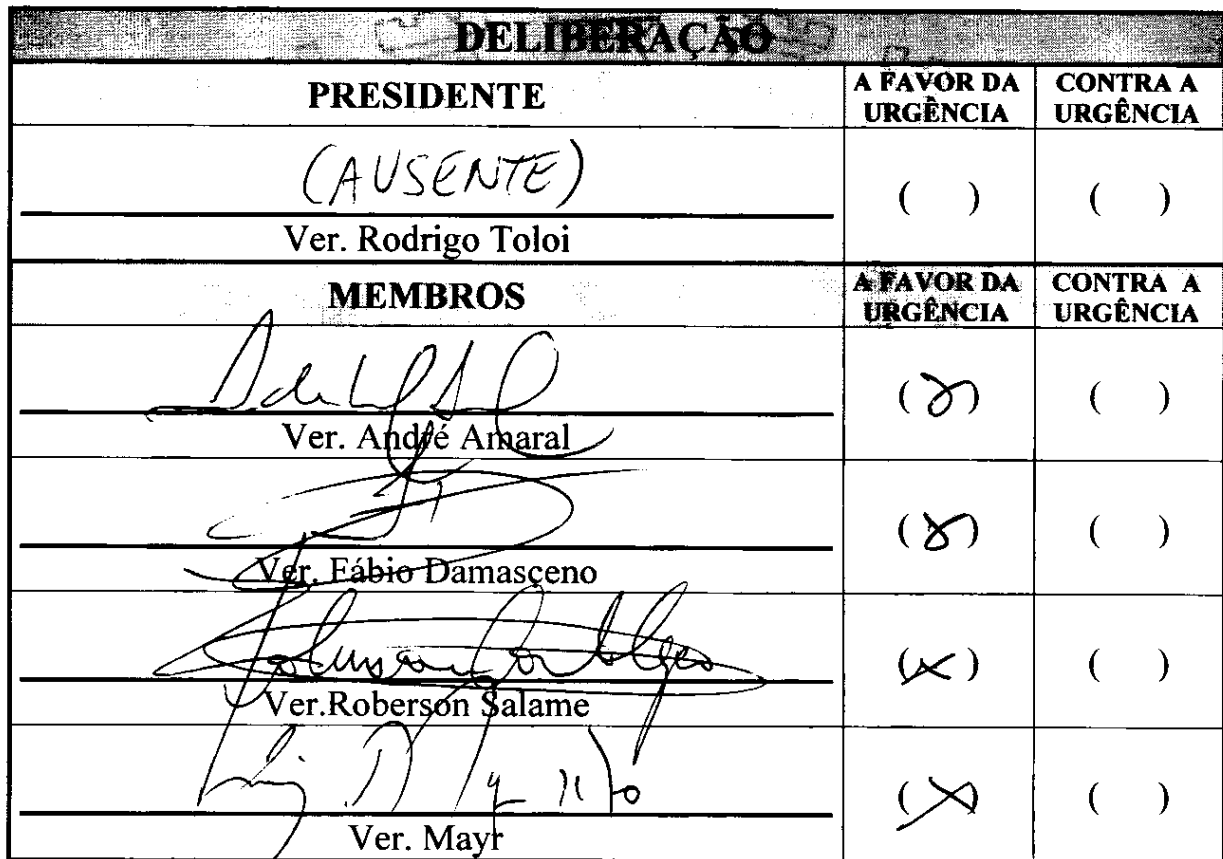 DELIBERAÇÃO
PRESIDENTE
A FAVOR DA URGÊNCIA
CONTRA A URGÊNCIA
(AUSENTE)
( )
( )
Ver. Rodrigo Toloi
MEMBROS
A FAVOR DA URGÊNCIA
CONTRA A URGÊNCIA
(X)
( )
Ver. André Amaral
(X)
( )
Ver. Fábio Damasceno
(X)
( )
Ver.Roberson Salame
(X)
( )
Ver. Mayr